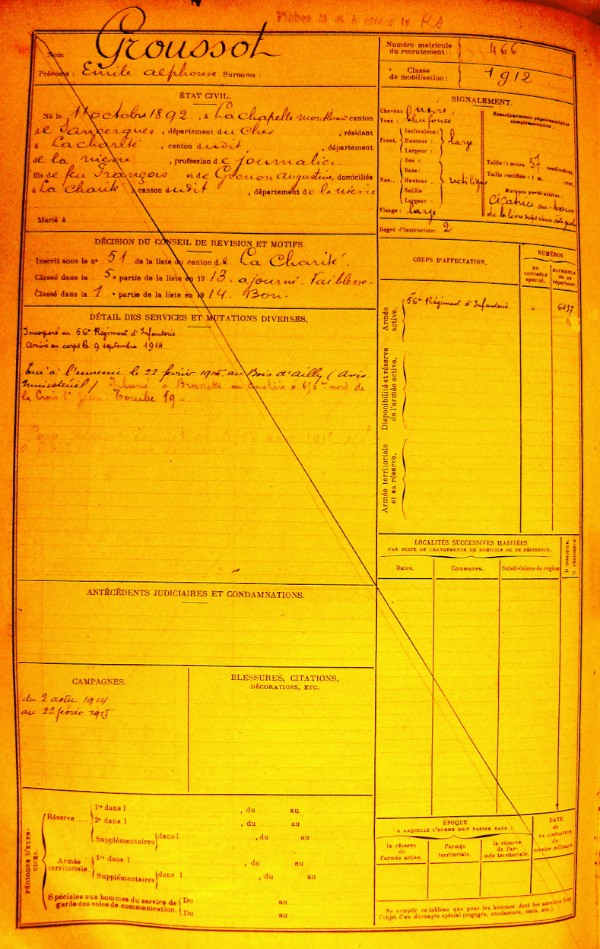 Groussot
Nom
Prénoms : Emile Alphonse Surnoms :
ÉTAT CIVIL.
Né le 1er octobre 1892, à La Chapelle Montlinard canton
de Sancergues, département du Cher, résidant
à La Charité, canton dudit, département
de la Nièvre, profession de journalier
fils de feu François et de Grenon Augustine, domiciliés
à La Charité canton dudit, département de la Nièvre
Marié à
DÉCISION DU CONSEIL DE REVISION ET MOTIFS.
Inscrit sous le no 51 de la liste du canton de La Charité.
Classé dans la 5e partie de la liste en 1913. ajourné. faiblesse
Classé dans la 1 e partie de la liste en 1914. Bon.
DÉTAIL DES SERVICES ET MUTATIONS DIVERSES.
Incorporé au 56e Régiment d'Infanterie
Arrivé au corps le 9 septembre 1914
Tué à l'ennemi le 22 février 1915 au Bois d'Ailly (Avis
ministériel) Inhumé à
de la Croix Tombe 19.
ANTÉCÉDENTS JUDICIAIRES ET CONDAMNATIONS.
CAMPAGNES.
du 2 août 1914
au 22 février 1915
BLESSURES, CITATIONS,
DÉCORATIONS, ETC.
PÉRIODES D'EXERCICES.
Réserve
1re dans l , du au
2e dans l , du au
Supplémentaires dans l , du au
Armée territoriale
1re dans l , du au
Supplémentaires dans l , du au
Spéciales aux hommes du service de
garde des voies de communication.
Du au
Du au
Numéro matricule
du recrutement : 466
Classe
de mobilisation : 1912
SIGNALEMENT.
Cheveux :
Yeux :
Front.
Inclinaison :
Hauteur : large
Largeur :
Nez.
Dos :
Base :
Hauteur : rectiligne
Saillie
Largeur :
Visage : large
Renseignements physionomiques
complémentaires :
Taille : 1 mètre 57 centimètres.
Taille rectifiée : 1 m. cent.
Marques particulières :
cicatrice au-dessus
de la lèvre supérieure côté gauche
Degré d'instruction : 2
CORPS D'AFFECTATION.
NUMÉROS
au contrôle spécial.
matricule ou au répertoire.
Armée active.
56e Régiment d'Infanterie
" 6437
Disponibilité et réserve de l'armée active.
Armée territoriale et sa réserve.
LOCALITÉS SUCCESSIVES HABITÉES
PAR SUITE DE CHANGEMENTS DE DOMICILE OU DE RÉSIDENCE.
Dates.
Communes.
Subdivisions de région
D domicile.
R résidence.
ÉPOQUE
À LAQUELLE L'HOMME DOIT PASSER DANS :
la réserve de l'armée active.
l'armée territoriale.
la réserve de l'armée territoriale.
DATE
de la libération du service militaire.
Ne remplir ce tableau que pour les hommes dont les services font
l'objet d'un décompte spécial (engagés, condamnés, omis, etc.)